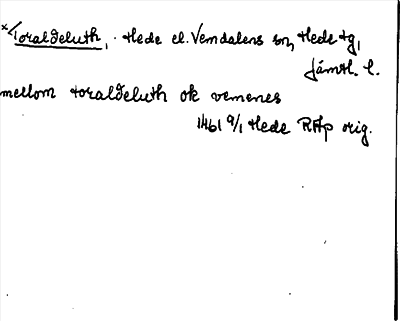 *Toraldeluth, . Hede el. Vemdalens sn, Hede tg,
Jämtl. l.
mellom toraldeluth ok vemenes
1461 9/1 Hede RAp orig.